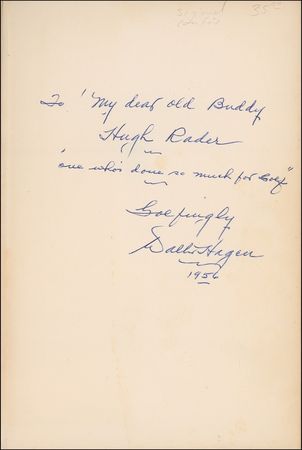 Signed
35
To "My dear old Buddy
Hugh Rader
"one who's done so much for Golf"
Golfingly
Walter Hagen
1956